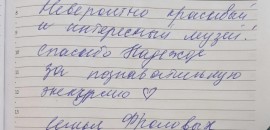 Невероятно красивый
и интересный музей!
Спасибо Надежде
за познавательную
экскурсию ♡
семья Фроловых